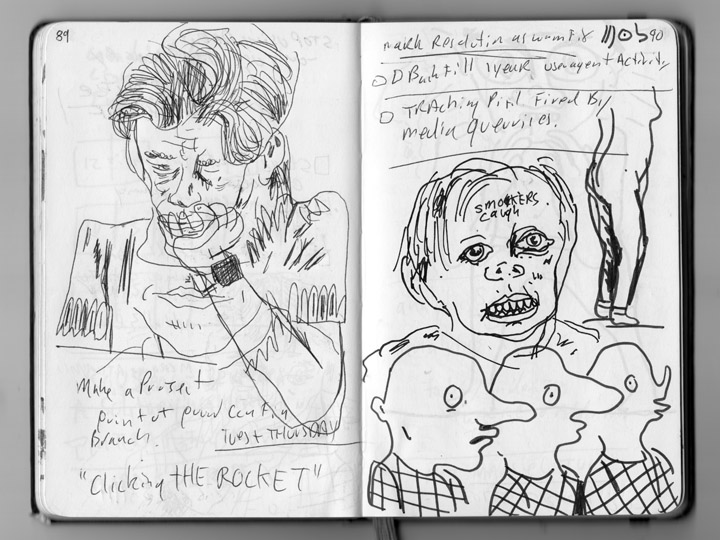 89
Make a Project
point at your config
Branch.
Tues + THURSDAY
"Clicking tHE ROCKET"
mark Resolution as wontfix
90
Backfill 1 year useragent Activity
TRAcking Pixel Fired By
media Queuries.
SMOKERS
Caugh